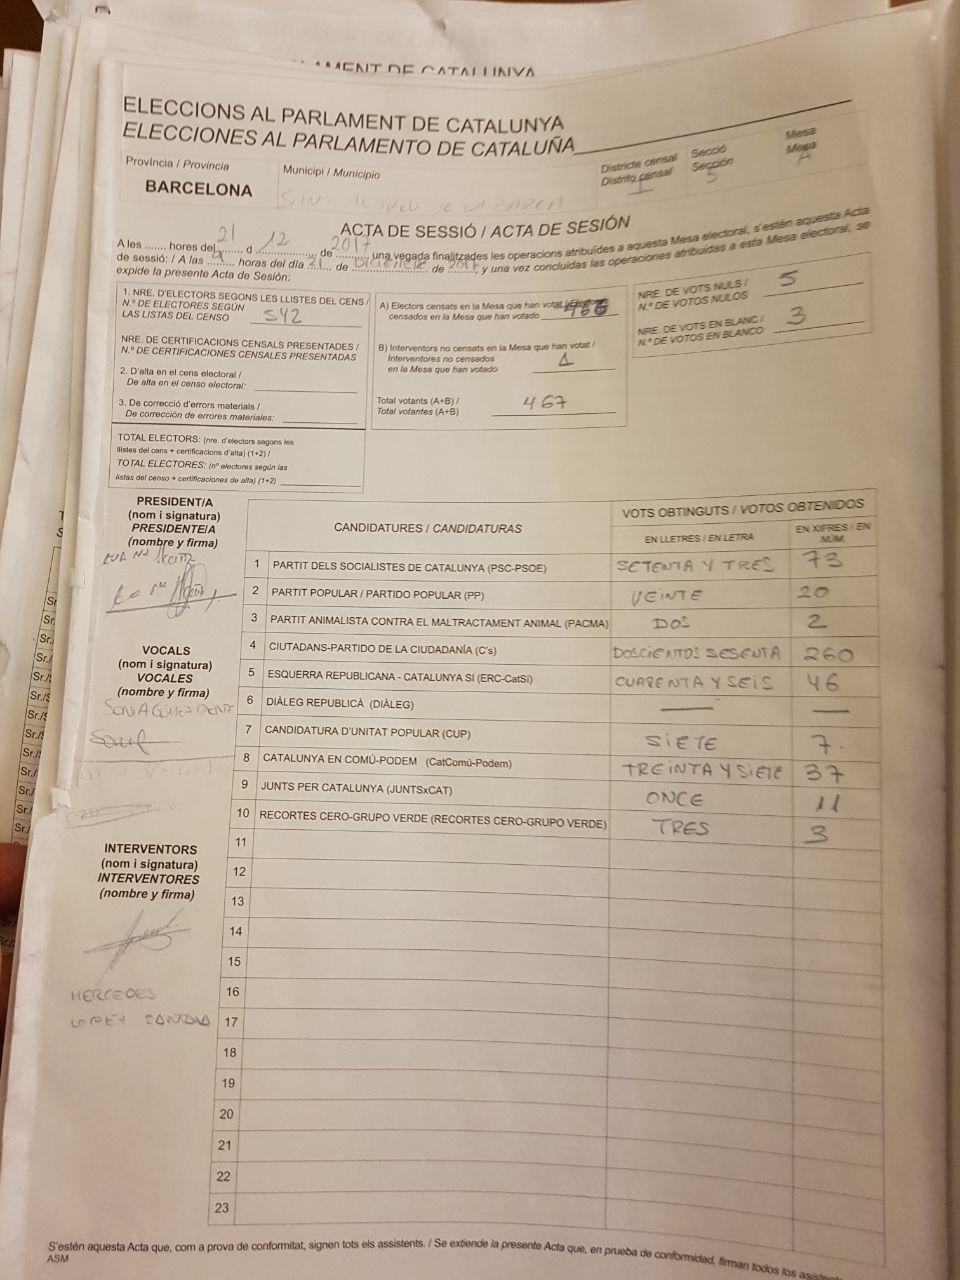 AMENT DE CATALUNYA
ELECCIONS AL PARLAMENT DE CATALUNYA
ELECCIONES AL PARLAMENTO DE CATALUÑA
Província / Provincia
BARCELONA
Municipi / Municipio
Districte censal
Distrito censal
Secció
Sección
5
Mesa
Mesa
A
ACTA DE SESSIÓ / ACTA DE SESIÓN
A les ....... hores del 21 d 12 de 2017 una vegada finalitzades les operacions atribuïdes a aquesta Mesa electoral, s'estén aquesta Acta
de sessió: / A las 9 horas del día 21 de Diciembre de 2017 y una vez concluidas las operaciones atribuidas a esta Mesa electoral, se
expide la presente Acta de Sesión:
1. NRE. D'ELECTORS SEGONS LES LLISTES DEL CENS /
N.º DE ELECTORES SEGÚN
LAS LISTAS DEL CENSO 542
NRE. DE CERTIFICACIONS CENSALS PRESENTADES /
N.º DE CERTIFICACIONES CENSALES PRESENTADAS
2. D'alta en el cens electoral /
De alta en el censo electoral:
3. De correcció d'errors materials /
De corrección de errores materiales:
TOTAL ELECTORS: (nre. d'electors segons les
llistes del cens + certificacions d'alta) (1+2) /
TOTAL ELECTORES: (nº electores según las
listas del censo + certificaciones de alta) (1+2)
A) Electors censats en la Mesa que han votat / Electores
censados en la Mesa que han votado 466
B) Interventors no censats en la Mesa que han votat /
Interventores no censados
en la Mesa que han votado 1
Total votants (A+B) /
Total votantes (A+B) 467
NRE. DE VOTS NULS /
N.º DE VOTOS NULOS 5
NRE. DE VOTS EN BLANC /
N.º DE VOTOS EN BLANCO 3
PRESIDENT/A
(nom i signatura)
PRESIDENTE/A
(nombre y firma)
EVA Mª
VOCALS
(nom i signatura)
VOCALES
(nombre y firma)
SONIA GOMEZ
INTERVENTORS
(nom i signatura)
INTERVENTORES
(nombre y firma)
MERCEDES
LOPEZ
CANDIDATURES / CANDIDATURAS
VOTS OBTINGUTS / VOTOS OBTENIDOS
EN LLETRES / EN LETRA
EN XIFRES / EN NÚM.
1 PARTIT DELS SOCIALISTES DE CATALUNYA (PSC-PSOE) SETENTA Y TRES 73
2 PARTIT POPULAR / PARTIDO POPULAR (PP) VEINTE 20
3 PARTIT ANIMALISTA CONTRA EL MALTRACTAMENT ANIMAL (PACMA) DOS 2
4 CIUTADANS-PARTIDO DE LA CIUDADANÍA (C's) DOSCIENTOS SESENTA 260
5 ESQUERRA REPUBLICANA - CATALUNYA SI (ERC-CatSí) CUARENTA Y SEIS 46
6 DIÀLEG REPUBLICÀ (DIÀLEG) — —
7 CANDIDATURA D'UNITAT POPULAR (CUP) SIETE 7.
8 CATALUNYA EN COMÚ-PODEM (CatComú-Podem) TREINTA Y SIETE 37
9 JUNTS PER CATALUNYA (JUNTSxCAT) ONCE 11
10 RECORTES CERO-GRUPO VERDE (RECORTES CERO-GRUPO VERDE) TRES 3
11
12
13
14
15
16
17
18
19
20
21
22
23
S'estén aquesta Acta que, com a prova de conformitat, signen tots els assistents. / Se extiende la presente Acta que, en prueba de conformidad, firman todos los
ASM